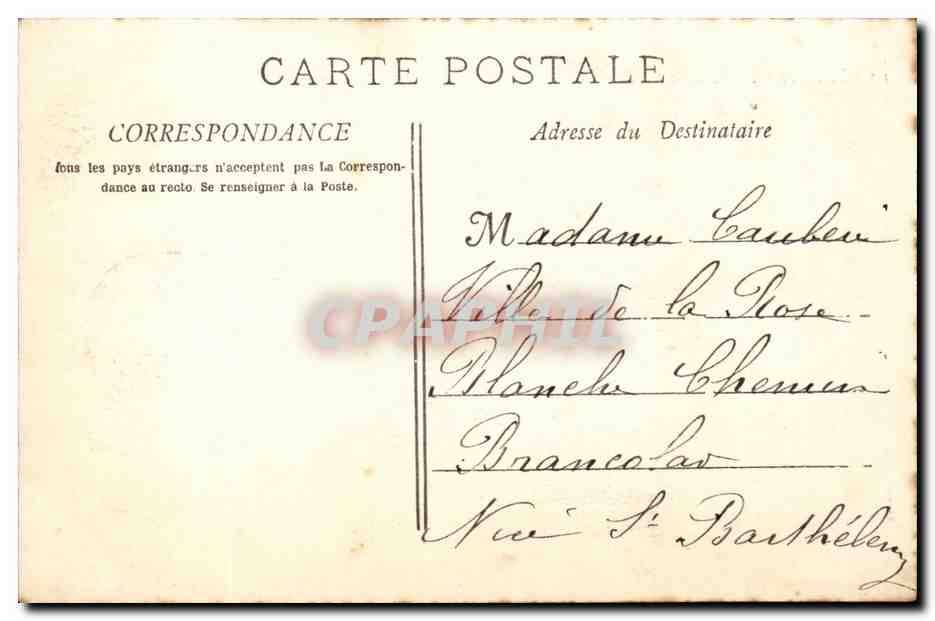 CARTE POSTALE
CORRESPONDANCE
Tous les pays étrangers n'acceptent pas La Correspon-
dance au recto. Se renseigner à la Poste.
Adresse du Destinataire
Madame
Villa de la Rose
Blanche Chemin
Brancolar
Nice St Barthélemy
CPAPHIL